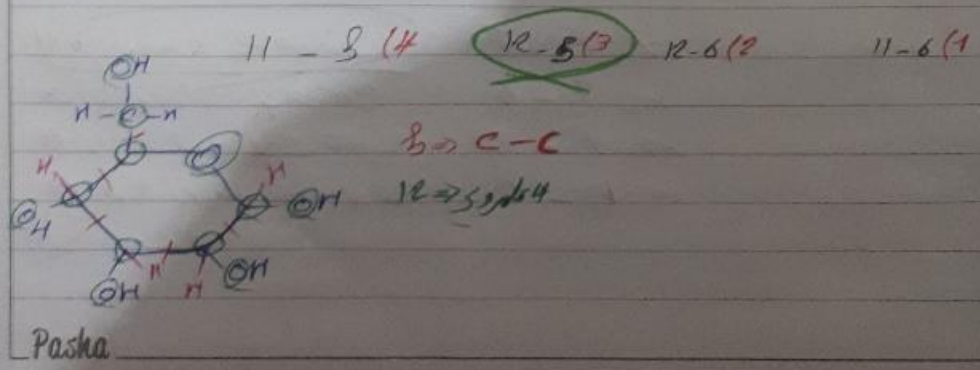 11 - 5 (4    12 - 5 (3    12 - 6 (2    11 - 6 (1
OH
H - C - H
C O
H H
OH OH
H
OH H OH
5 => C - C
12 =>
Pasha